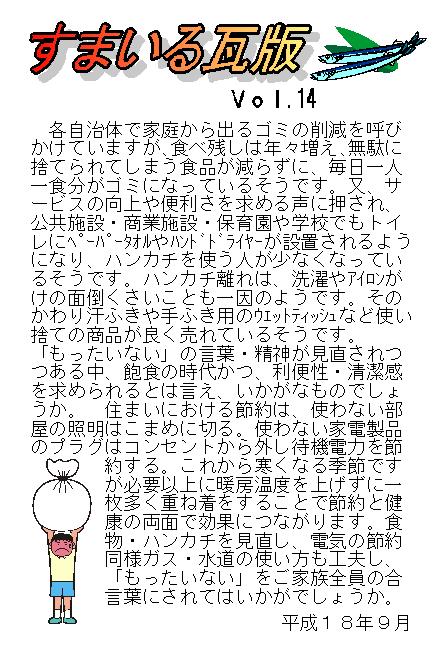 すまいる瓦版
Vol.14
各自治体で家庭から出るゴミの削減を呼び
かけていますが、食べ残しは年々増え、無駄に
捨てられてしまう食品が減らずに、毎日一人
一食分がゴミになっているそうです。又、サ
ービスの向上や便利さを求める声に押され、
公共施設・商業施設・保育園や学校でもトイ
レにﾍﾟｰﾊﾟｰﾀｵﾙやﾊﾝﾄﾞﾄﾞﾗｲﾔｰが設置されるよう
になり、ハンカチを使う人が少なくなってい
るそうです。ハンカチ離れは、洗濯やｱｲﾛﾝが
けの面倒くさいことも一因のようです。その
かわり汗ふきや手ふき用のｳｪｯﾄﾃｨｯｼｭなど使い
捨ての商品が良く売れているそうです。
「もったいない」の言葉・精神が見直されつ
つある中、飽食の時代かつ、利便性・清潔感
を求められるとは言え、いかがなものでしょ
うか。　住まいにおける節約は、使わない部
屋の照明はこまめに切る。使わない家電製品
のプラグはコンセントから外し待機電力を節
約する。これから寒くなる季節です
が必要以上に暖房温度を上げずに一
枚多く重ね着をすることで節約と健
康の両面で効果につながります。食
物・ハンカチを見直し、電気の節約
同様ガス・水道の使い方も工夫し、
「もったいない」をご家族全員の合
言葉にされてはいかがでしょうか。
平成１８年９月